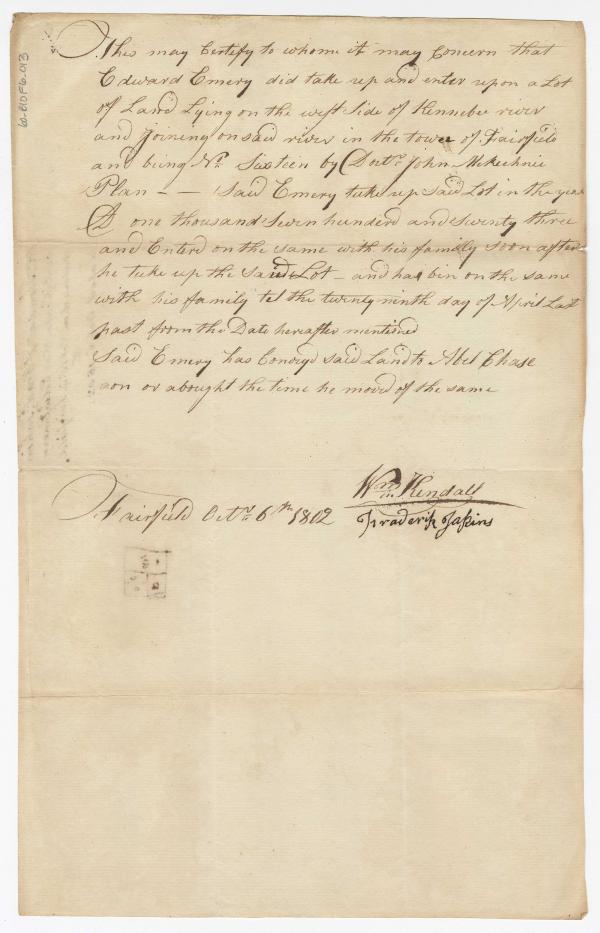 This may Certify to whome it may Concern that
Edward Emery did take up and enter upon a Lot
of Land Lying on the west Side of Kennebec river
and Joining on said river in the town of Fairfield
and being No. Sixteen by Doctr. John McKechnie
Plan - - Said Emery take up Said Lot in the year
one thousand Sevin hunderd and Seventy three
and Entered on the same with his family soon after
he take up the said Lot - and has bin on the same
with his family tel the twenty ninth day of April Last
past from the Date hereafter mentioned
Said Emery has Conveyd said Land to Abel Chase
aon or abought the time he moved of the same
Wm. Kendall
Fairfield Octr. 6th 1802
Fraderik Jakins